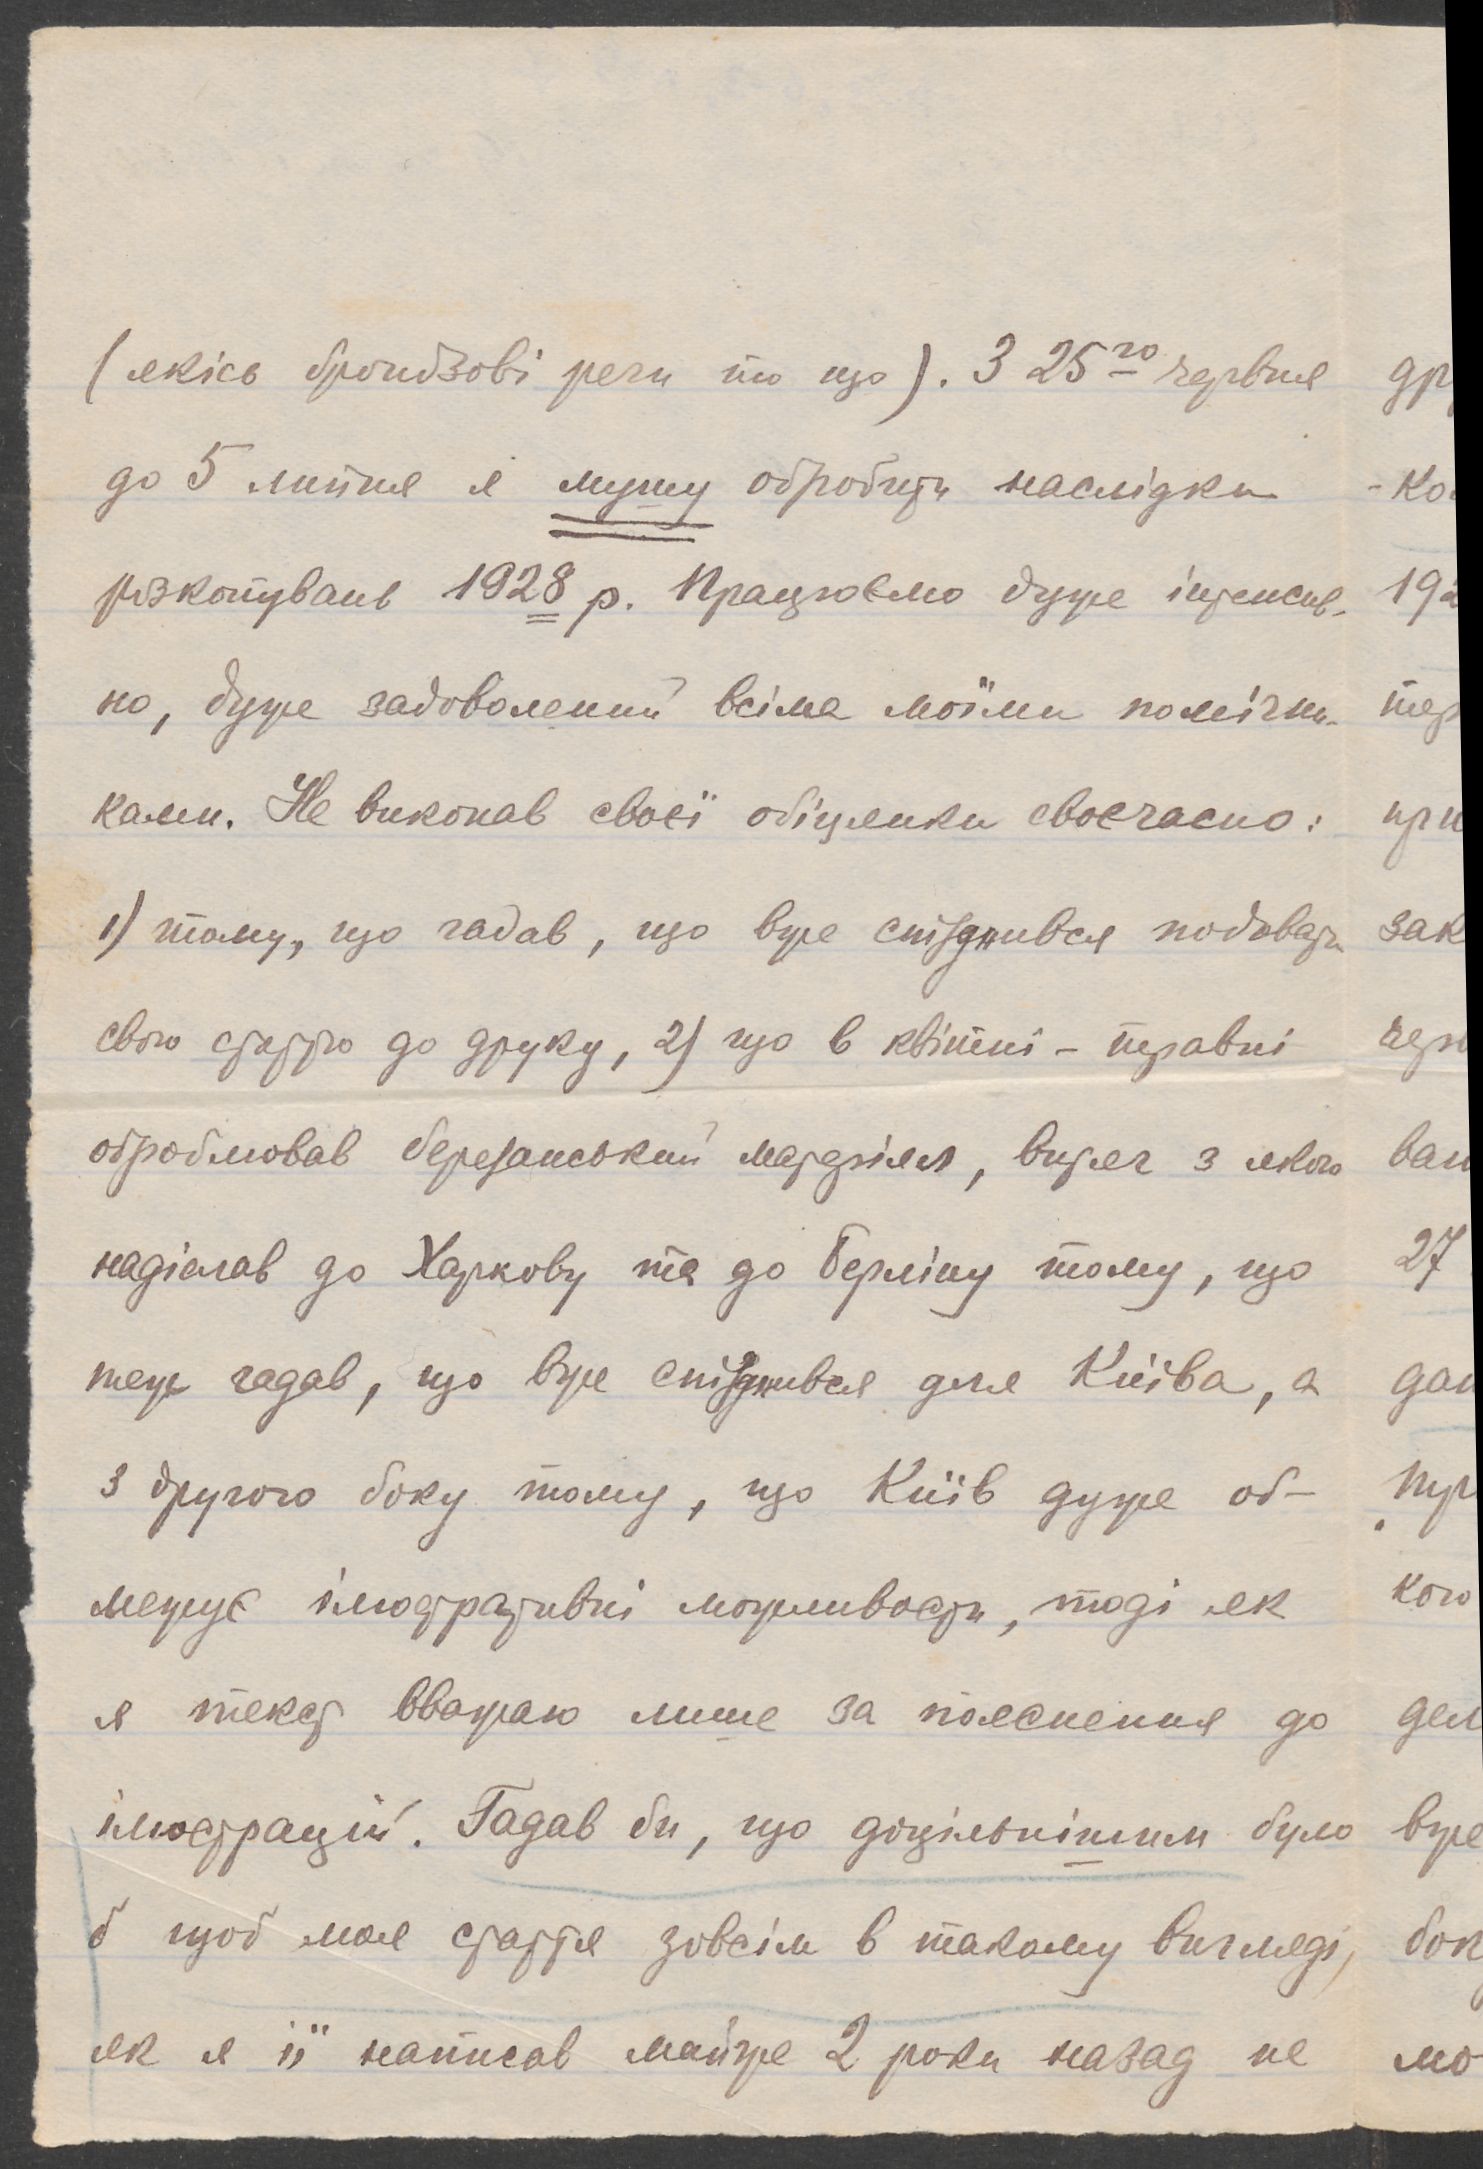 (якісь брондзові речи то що). З 25го червня
до 5 липня я мушу обробити наслідки
розкопувань 1928 р. Працюємо дуже інтенсив-
но, дуже задоволений всіма моїми помічни-
ками. Не виконав своєї обіцянки своєчасно:
1) тому, що гадав, що вже спізднився подавати
свою статтю до друку, 2) що в квітні - травні
оброблював березанський матеріял, витяг з якого
надіслав до Харкову та до Берліну тому, що
теж гадав, що вже спізднився для Київа, а
з другого боку тому, що Київ дуже об-
межує ілюстративні можливости, тоді як
я текст вважаю лише за пояснення до
ілюстрацій. Гадав би, що доцільнішим було
б щоб моя стаття зовсім в такому вигляді,
як я її написав майже 2 роки назад не